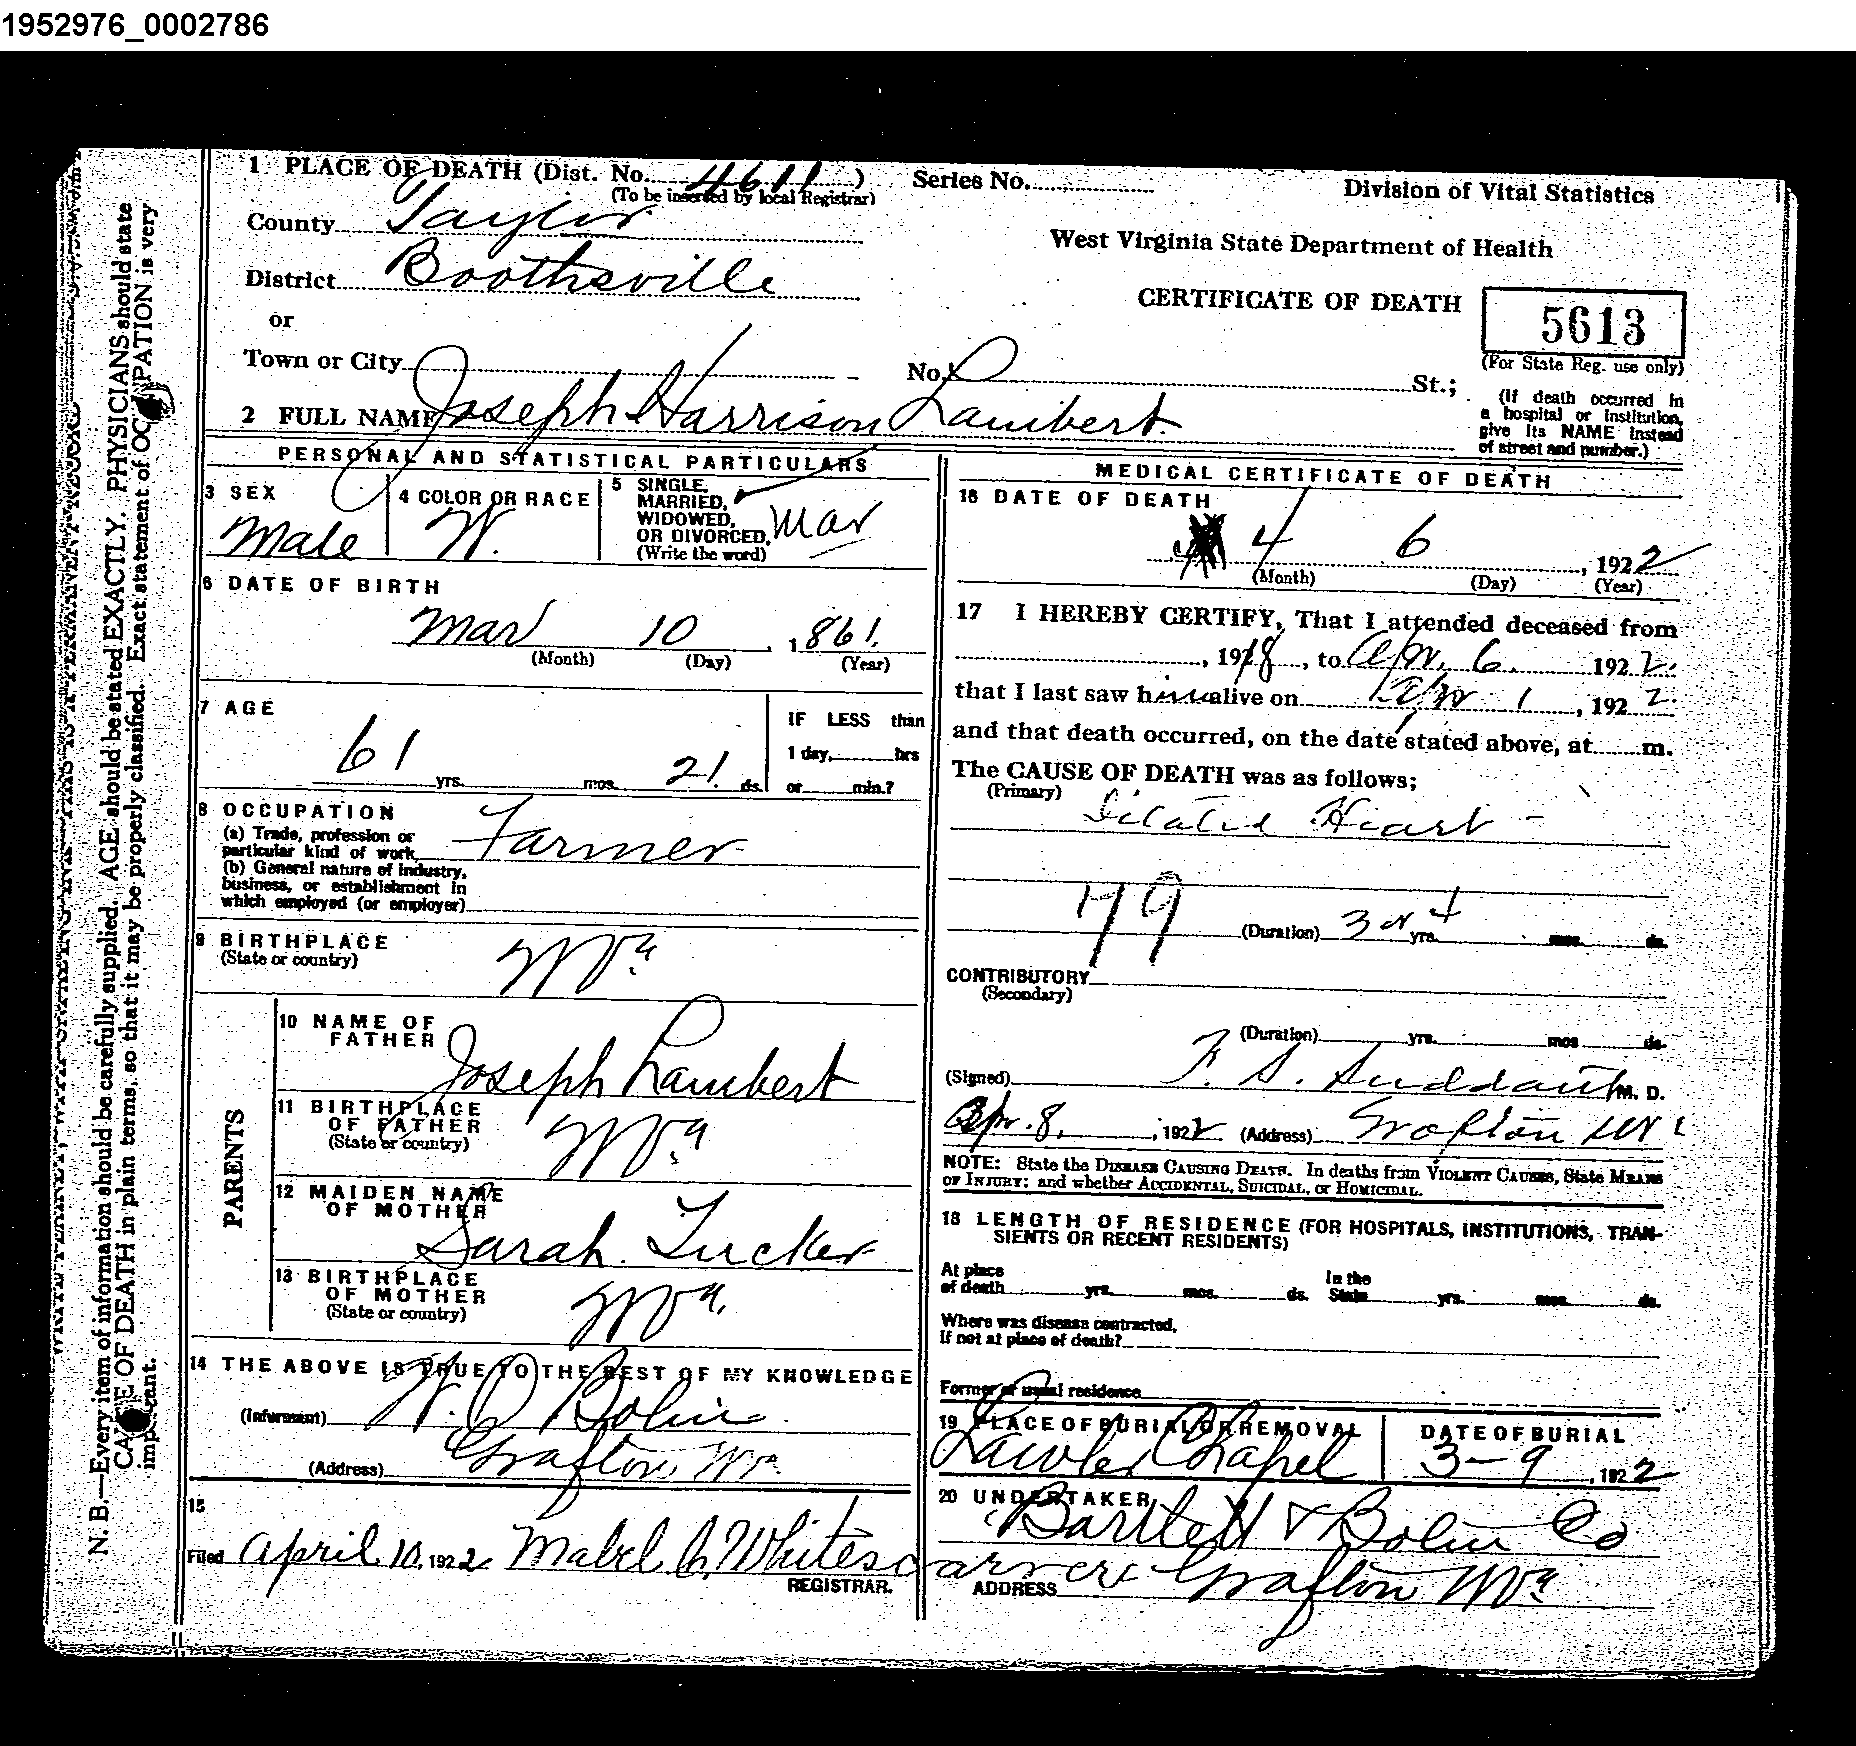 1952976_0002786
1 PLACE OF DEATH (Dist. No. 4611 )
(To be inserted by local Registrar)
Series No.
Division of Vital Statistics
County Taylor
West Virginia State Department of Health
District Boothsville
CERTIFICATE OF DEATH
5613
(For State Reg. use only)
or
Town or City
No. St.;
(If death occurred in
a hospital or institution,
give its NAME instead
of street and number.)
2 FULL NAME Joseph Harrison Lambert
PERSONAL AND STATISTICAL PARTICULARS
3 SEX
Male
4 COLOR OR RACE
W.
5 SINGLE,
MARRIED,
WIDOWED,
OR DIVORCED,
(Write the word)
Mar
6 DATE OF BIRTH
Mar 10 , 1861.
(Month) (Day) (Year)
7 AGE
61 yrs. mos. 21 ds.
IF LESS than
1 day, hrs
or min.?
8 OCCUPATION
(a) Trade, profession or
particular kind of work Farmer
(b) General nature of industry,
business, or establishment in
which employed (or employer)
9 BIRTHPLACE
(State or country)
W Va
PARENTS
10 NAME OF
FATHER
Joseph Lambert
11 BIRTHPLACE
OF FATHER
(State or country)
W Va
12 MAIDEN NAME
OF MOTHER
Sarah Tucker
13 BIRTHPLACE
OF MOTHER
(State or country)
W Va.
14 THE ABOVE IS TRUE TO THE BEST OF MY KNOWLEDGE
(Informant) W. O Bolin
(Address) Grafton, W Va
15
Filed April 10, 1922 Mabel A. Whitescarver
REGISTRAR.
MEDICAL CERTIFICATE OF DEATH
16 DATE OF DEATH
4 6 , 1922
(Month) (Day) (Year)
17 I HEREBY CERTIFY, That I attended deceased from
, 1918 , to Apr. 6. 1922.
that I last saw him alive on Apr 1 , 1922.
and that death occurred, on the date stated above, at m.
The CAUSE OF DEATH was as follows;
(Primary)
Dilated Heart -
(Duration) 3 or 4 yrs. mos. ds.
CONTRIBUTORY
(Secondary)
(Duration) yrs. mos ds.
(Signed) F. S. Suddarth M. D.
Apr. 8. , 1922 (Address) Grafton W V
NOTE: State the DISEASE CAUSING DEATH. In deaths from VIOLENT CAUSES, State MEANS
OF INJURY; and whether ACCIDENTAL, SUICIDAL, or HOMICIDAL.
18 LENGTH OF RESIDENCE (FOR HOSPITALS, INSTITUTIONS, TRAN-
SIENTS OR RECENT RESIDENTS)
At place
of death yrs. mos. ds.
In the
State yrs. mos. ds.
Where was disease contracted,
if not at place of death?
Former or usual residence
19 PLACE OF BURIAL OR REMOVAL
Lawler Chapel
DATE OF BURIAL
3-9 , 1922
20 UNDERTAKER
Bartlett & Bolin Co
ADDRESS Grafton W Va
N. B.—Every item of information should be carefully supplied. AGE should be stated EXACTLY. PHYSICIANS should state
CAUSE OF DEATH in plain terms, so that it may be properly classified. Exact statement of OCCUPATION is very
important.